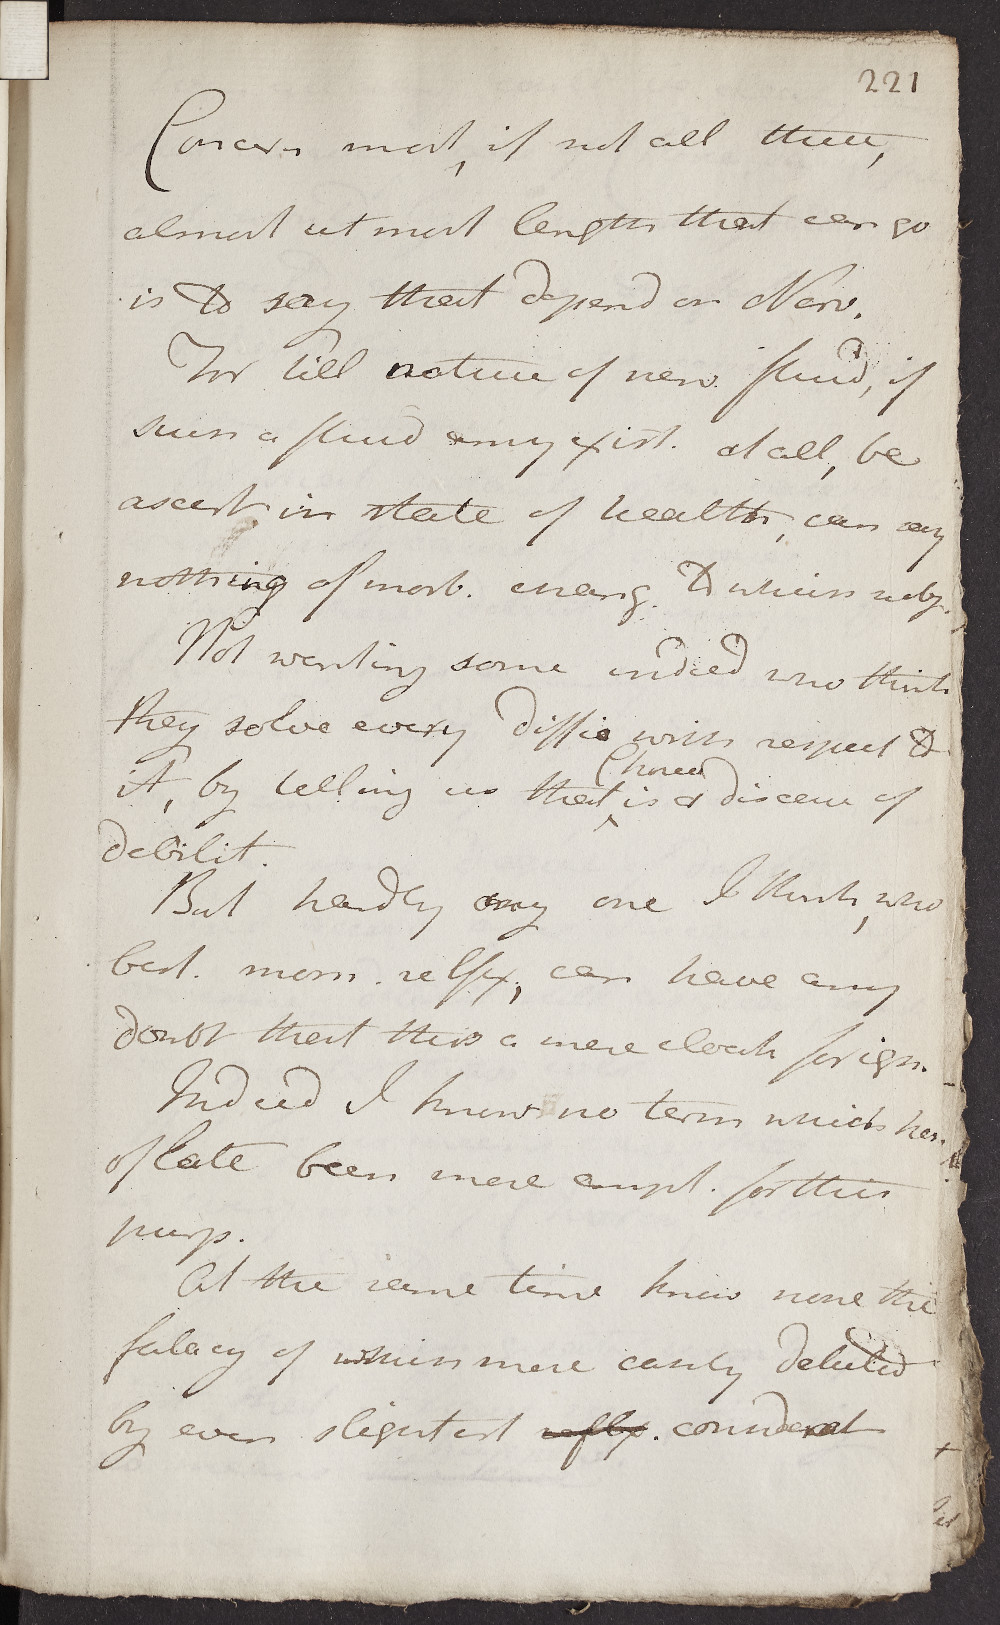 221
Concern most, if not all these,
almost utmost length that can go
is to say that depend on Nerv.
For till nature of nerv. fluid, if
such a fluid any exist. at all, be
ascert. in state of health, can say
nothing of morb. chang. to which subj.
Not wanting some indeed who think
they solve every diffic with respect to
Chorea
it, by telling us that is a disease of
debilit.
But hardly any one I think, who
best. mom. reflx, can have any
doubt that this a mere cloak for ign.
Indeed I know no term which has
of late been more empl. for this
purp.
At the same time know none the
falacy of which more easily detected
by even slightest reflx. considerat